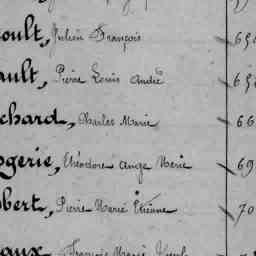 oult, Julien François 65
ault, Pierre Louis André 65
chard, Charles Marie 66
gerie, Théodore Ange Marie 69
bert, Pierre Marie Etienne 70
aux, François Marie